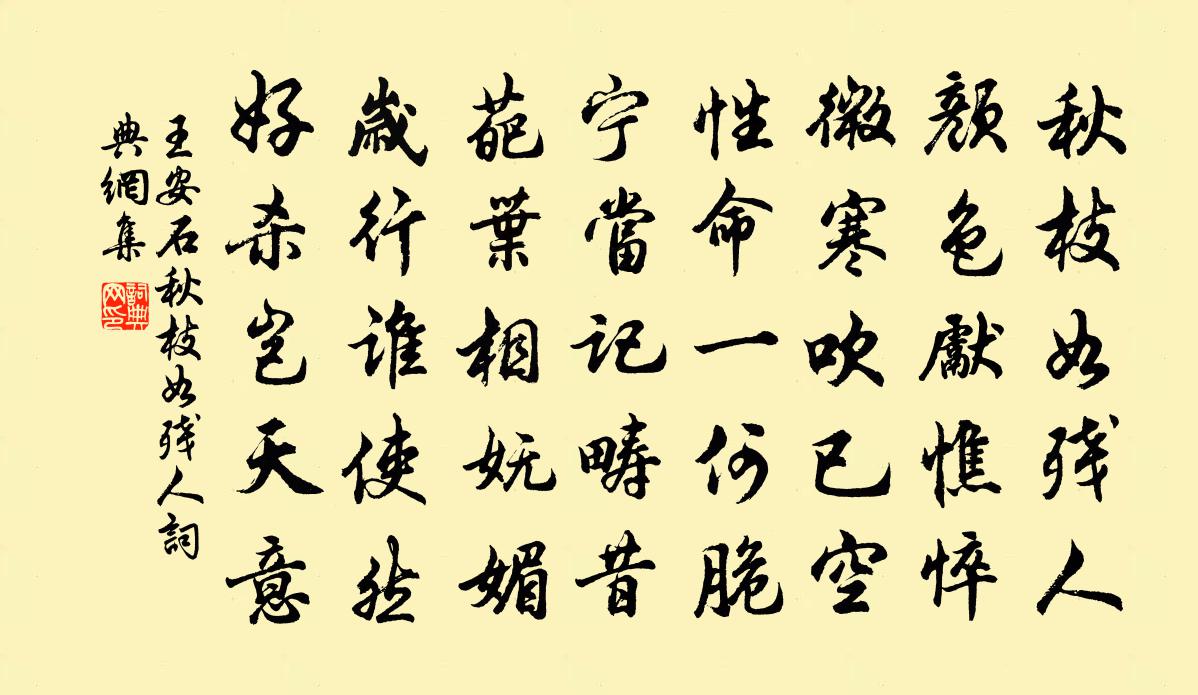 秋枝如残人
顏色獻憔悴
微寒吹已空
性命一何脆
宁當记疇昔
葩葉相妩媚
歲行谁使然
好杀岂天意
王安石秋枝如残人詞
典網集
詞典
网印